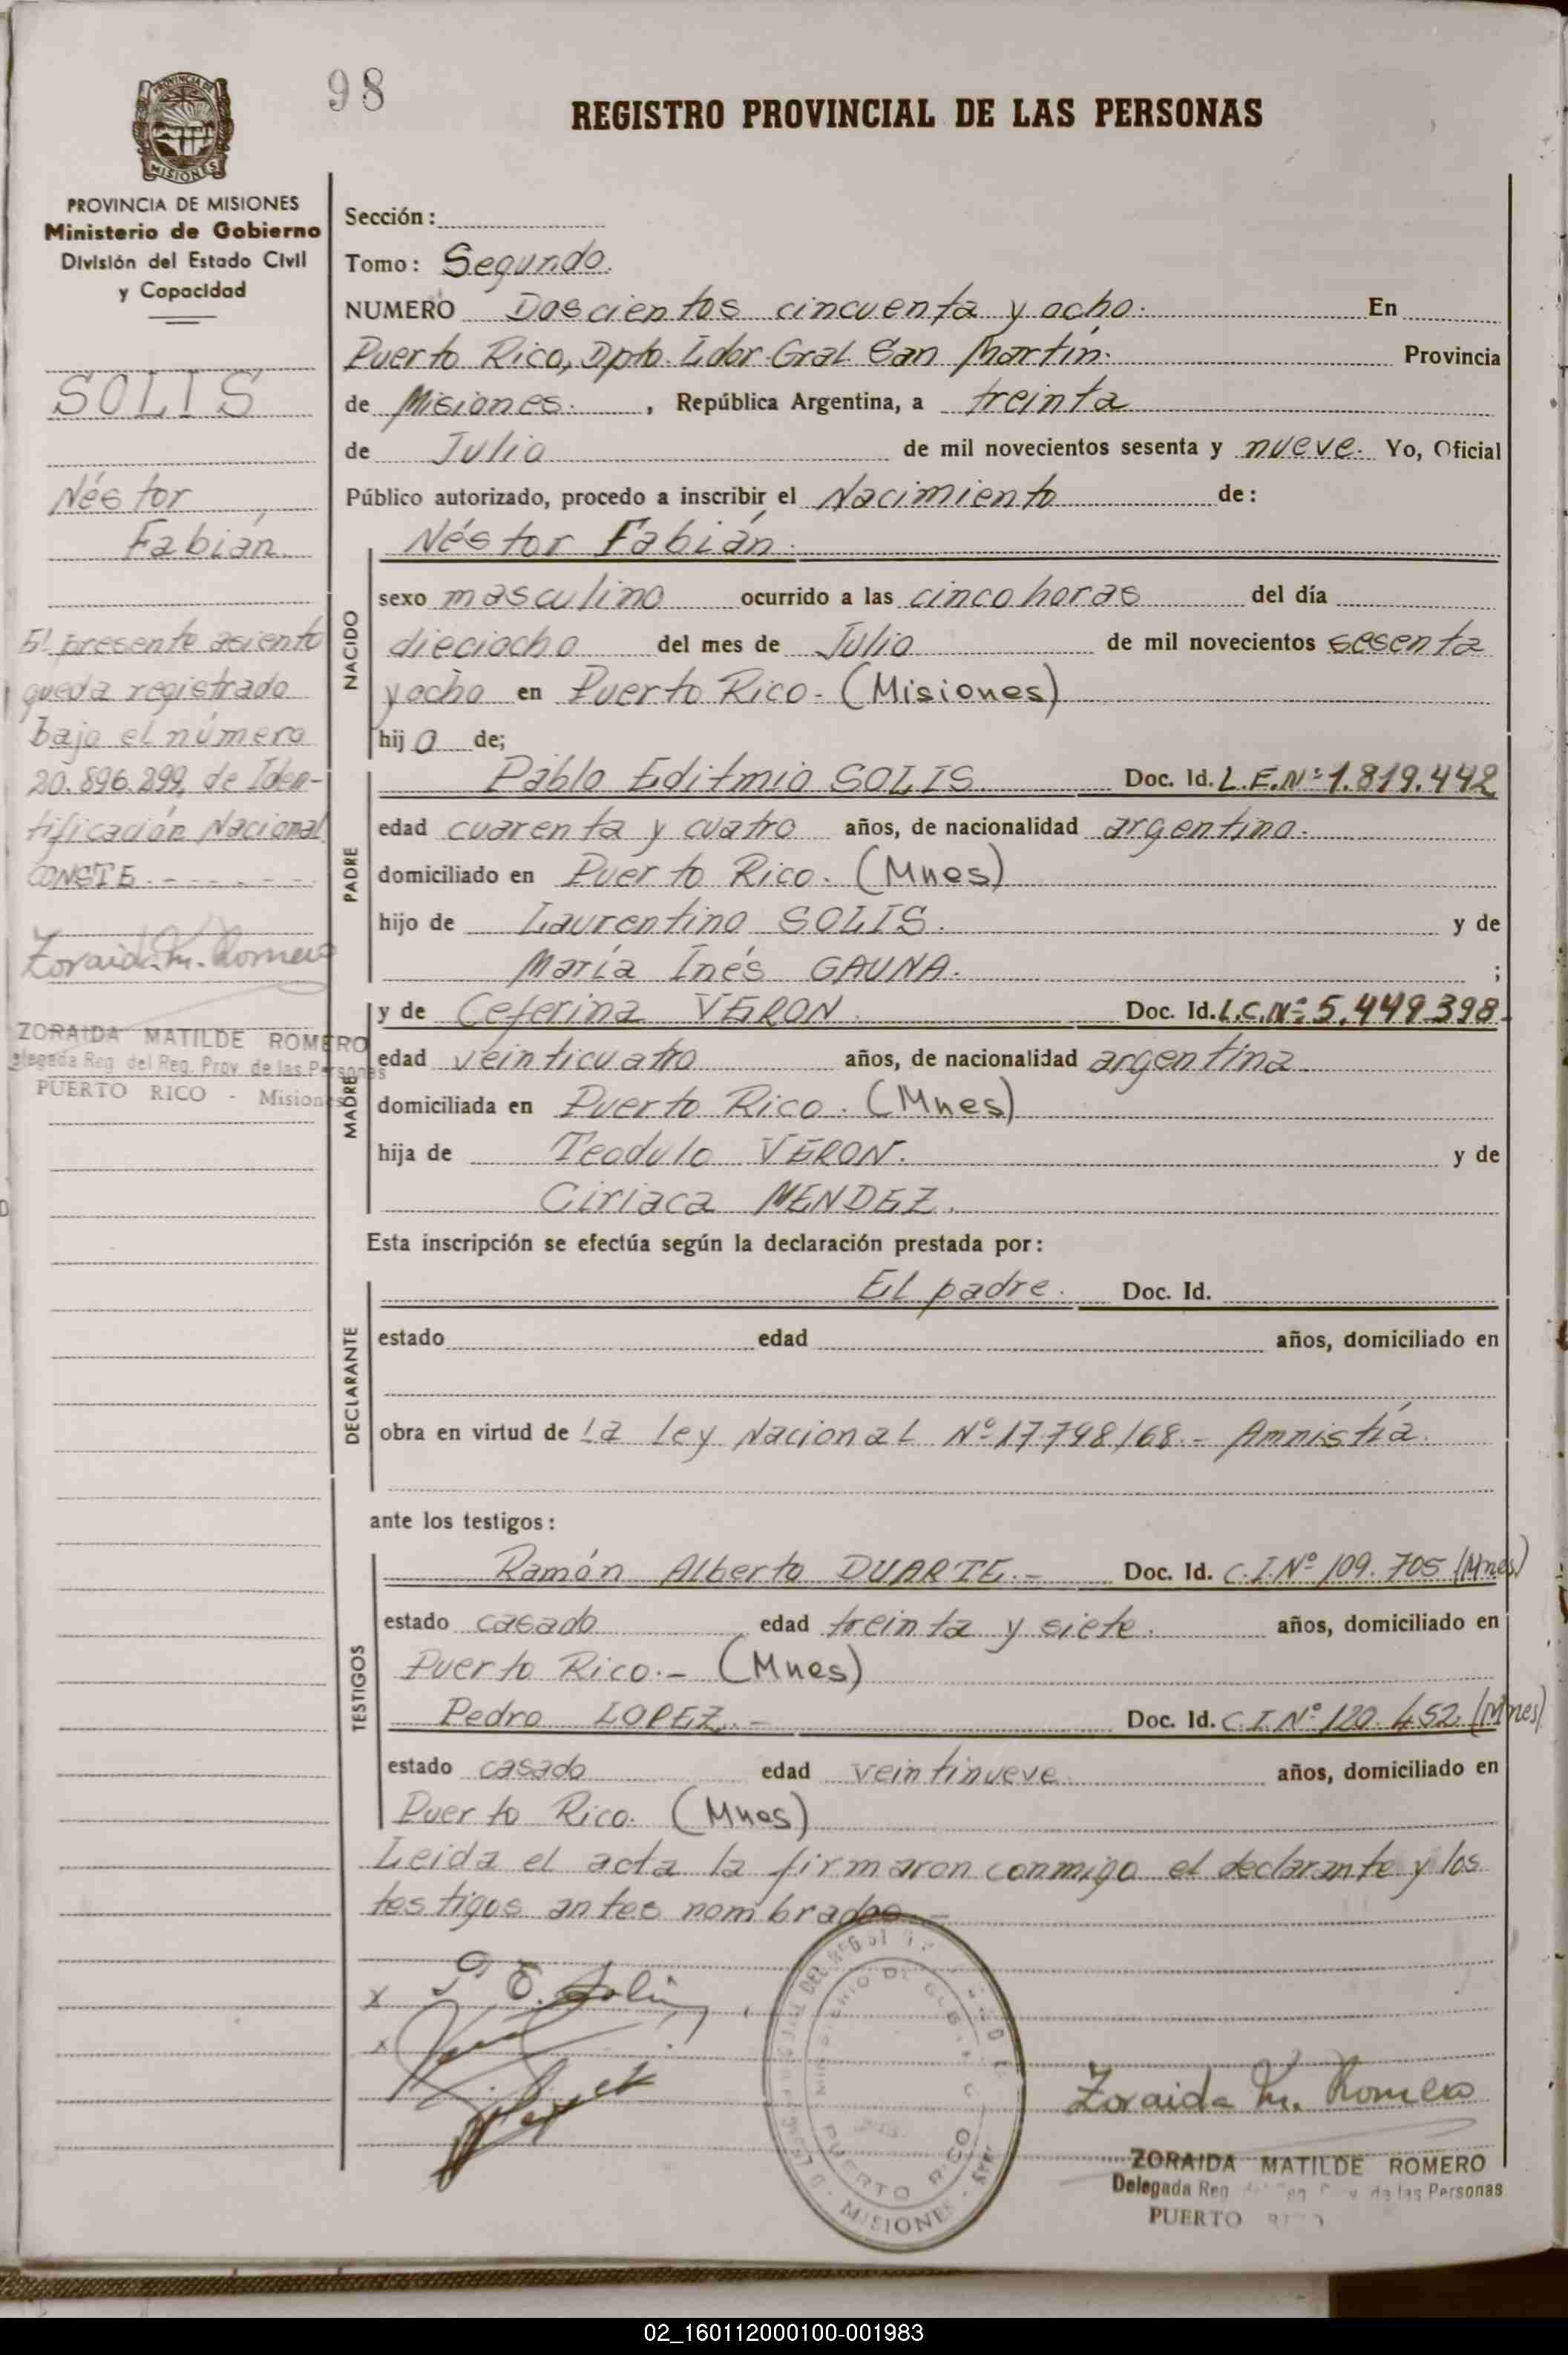 98
REGISTRO PROVINCIAL DE LAS PERSONAS
PROVINCIA DE MISIONES
Ministerio de Gobierno
División del Estado Civil
y Capacidad
SOLIS
Néstor
Fabián
El presente asiento
queda registrado
bajo el número
20.896.299, de Iden-
tificación Nacional
CONSTE.
Zoraida M. Romero
ZORAIDA MATILDE ROMERO
elegada Reg. del Reg. Prov. de las Personas
PUERTO RICO - Misiones
Sección:
Tomo: Segundo.
NUMERO Doscientos cincuenta y ocho. En
Puerto Rico, Dpto. Ldor. Gral. San Martín. Provincia
de Misiones. , República Argentina, a treinta
de Julio de mil novecientos sesenta y nueve. Yo, Oficial
Público autorizado, procedo a inscribir el Nacimiento de:
Néstor Fabián.
NACIDO
sexo masculino ocurrido a las cinco horas del día
dieciocho del mes de Julio de mil novecientos sesenta
y ocho en Puerto Rico.- (Misiones)
hijo de;
PADRE
Pablo Editmio SOLIS Doc. Id. L.E.Nº 1.819.442
edad cuarenta y cuatro años, de nacionalidad argentino.
domiciliado en Puerto Rico. (Mnes)
hijo de Laurentino SOLIS. y de
María Inés GAUNA. ;
MADRE
y de Ceferina VERON. Doc. Id. L.C.Nº 5.449.398.
edad veinticuatro años, de nacionalidad argentina.
domiciliada en Puerto Rico. (Mnes)
hija de Teodulo VERON. y de
Ciriaca MENDEZ.
Esta inscripción se efectúa según la declaración prestada por:
DECLARANTE
El padre. Doc. Id.
estado edad años, domiciliado en
obra en virtud de la Ley Nacional Nº 17.798/68.- Amnistía.
ante los testigos:
TESTIGOS
Ramón Alberto DUARTE.- Doc. Id. C.I.Nº 109.705 (Mnes)
estado casado edad treinta y siete. años, domiciliado en
Puerto Rico.- (Mnes)
Pedro LOPEZ.- Doc. Id. C.I.Nº 120.452. (Mnes)
estado casado edad veintinueve. años, domiciliado en
Puerto Rico. (Mnes)
Leida el acta la firmaron conmigo el declarante y los
testigos antes nombrados.-
x P. E. Solis
x
PUERTO RICO
MISIONES
Zoraida M. Romero
ZORAIDA MATILDE ROMERO
Delegada Reg de las Personas
PUERTO RICO
02_160112000100-001983